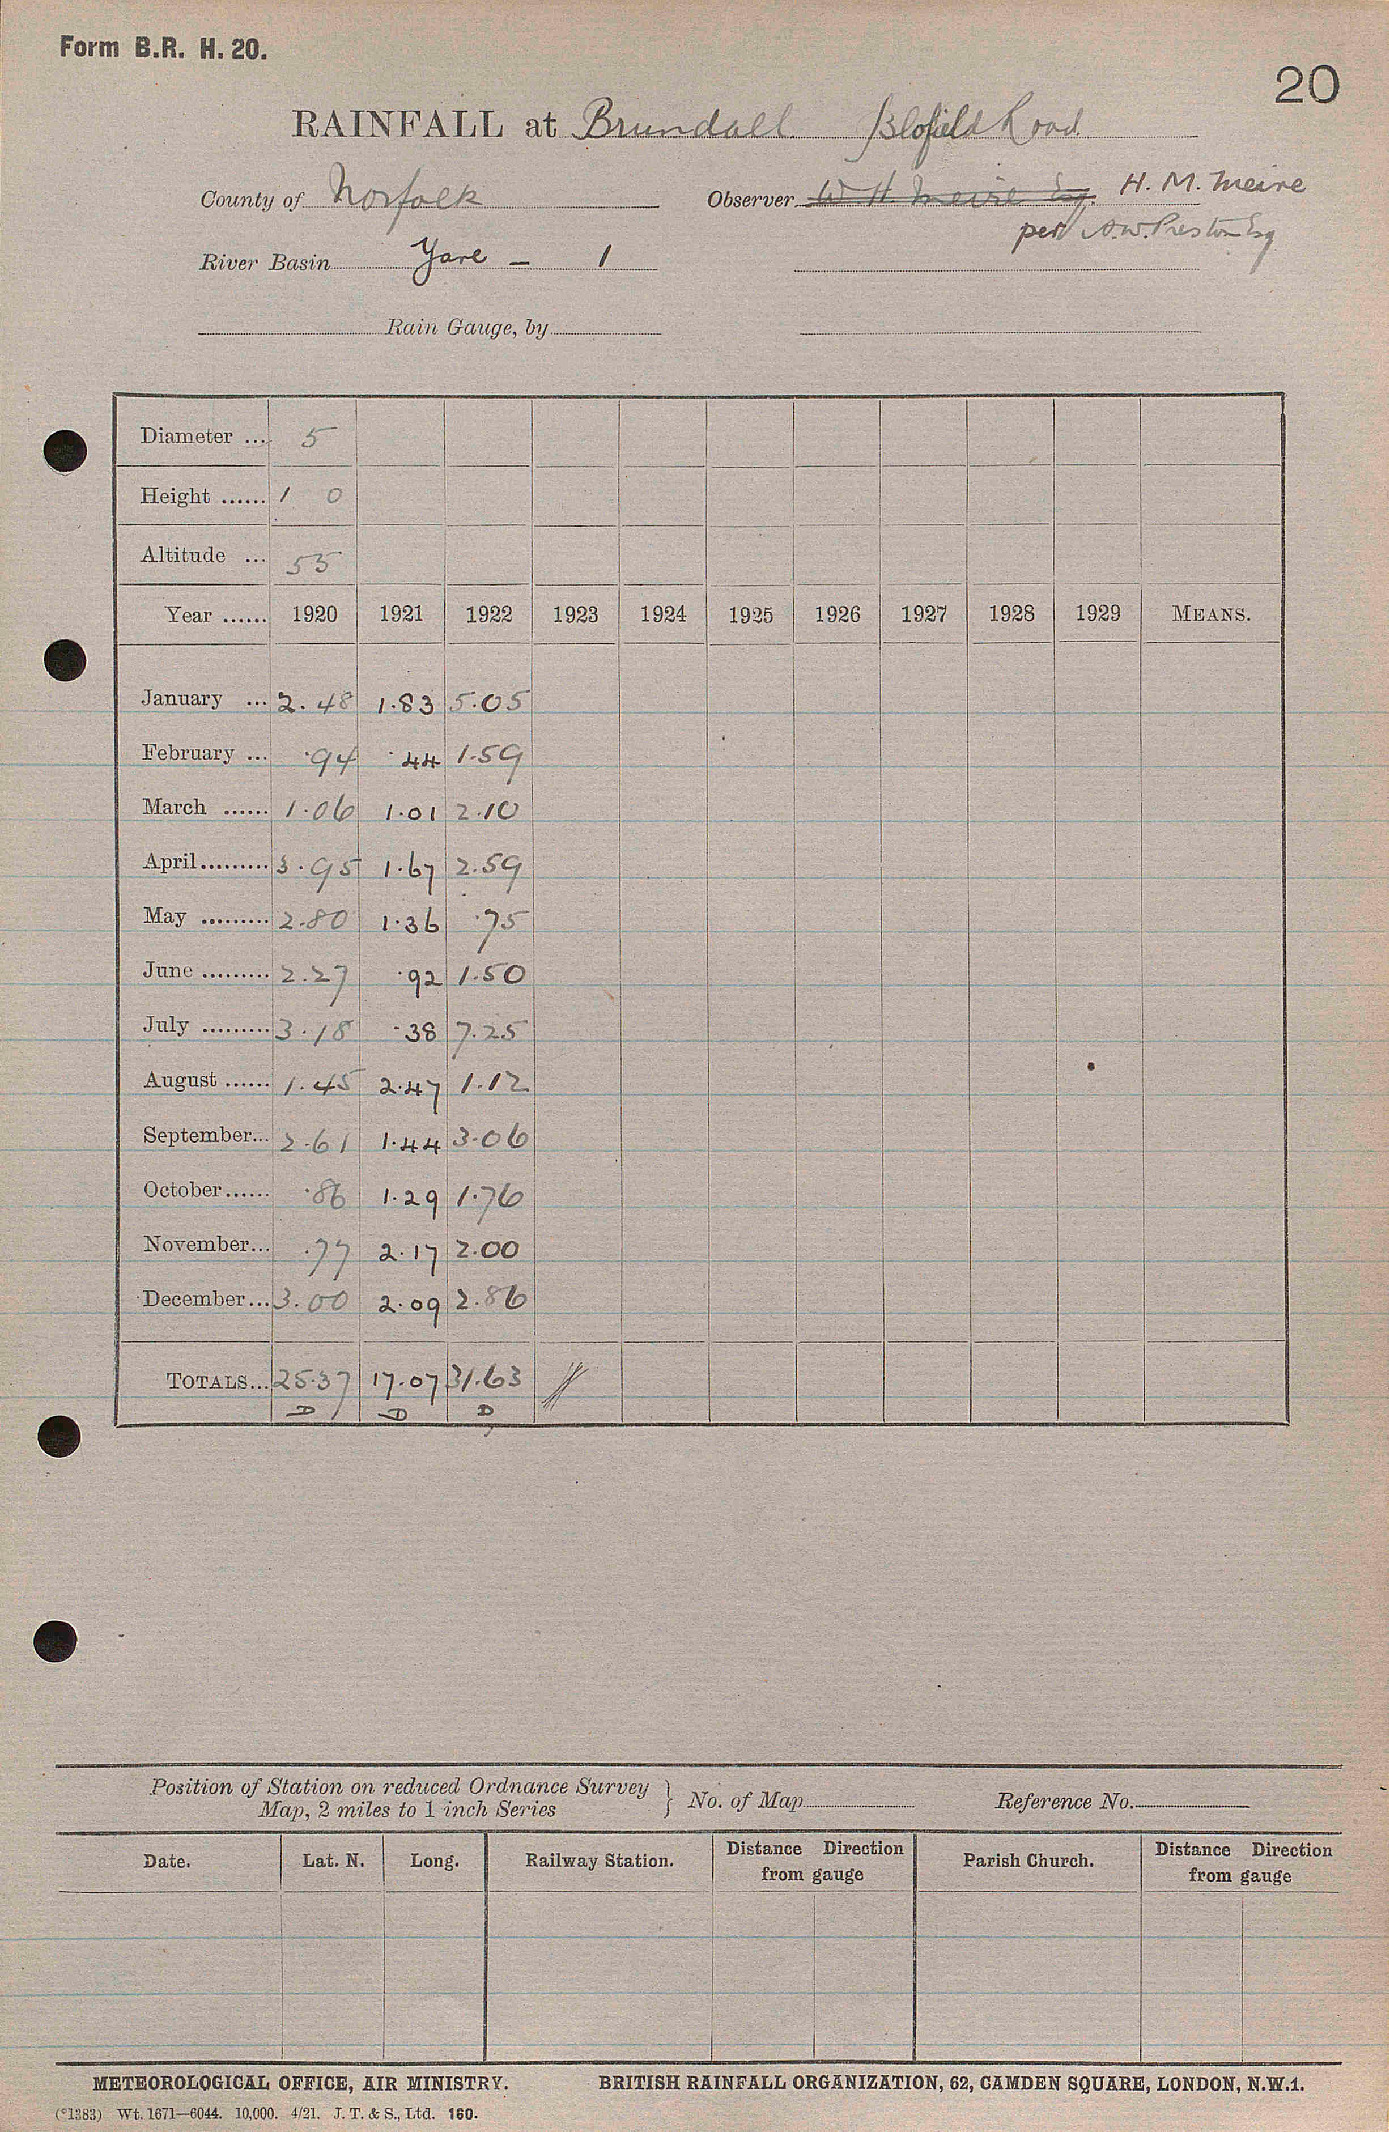 Form B.R. H. 20.
20
RAINFALL at Brundall Blofield Road
County of Norfolk Observer W. H. Meire Esq. H. M. Meire
per A.W. Preston Esq
River Basin Yare - 1
Rain Gauge, by
Diameter ... 5
Height ...... 1 0
Altitude ... 55
Year ...... 1920 1921 1922 1923 1924 1925 1926 1927 1928 1929 MEANS.
January ... 2.48 1.83 5.05
February ... .94 .44 1.59
March ...... 1.06 1.01 2.10
April......... 3.95 1.67 2.59
May ......... 2.80 1.36 .75
June ......... 2.27 .92 1.50
July ......... 3.18 .38 7.25
August ...... 1.45 2.47 1.12
September... 2.61 1.44 3.06
October...... .86 1.29 1.76
November... .77 2.17 2.00
December... 3.00 2.09 2.86
TOTALS... 25.37 17.07 31.63
D D D
Position of Station on reduced Ordnance Survey
Map, 2 miles to 1 inch Series } No. of Map Reference No.
Date. Lat. N. Long. Railway Station. Distance Direction from gauge Parish Church. Distance Direction from gauge
METEOROLOGICAL OFFICE, AIR MINISTRY. BRITISH RAINFALL ORGANIZATION, 62, CAMDEN SQUARE, LONDON, N.W.1.
(°1383) Wt. 1671—6044. 10,000. 4/21. J. T. & S., Ltd. 160.